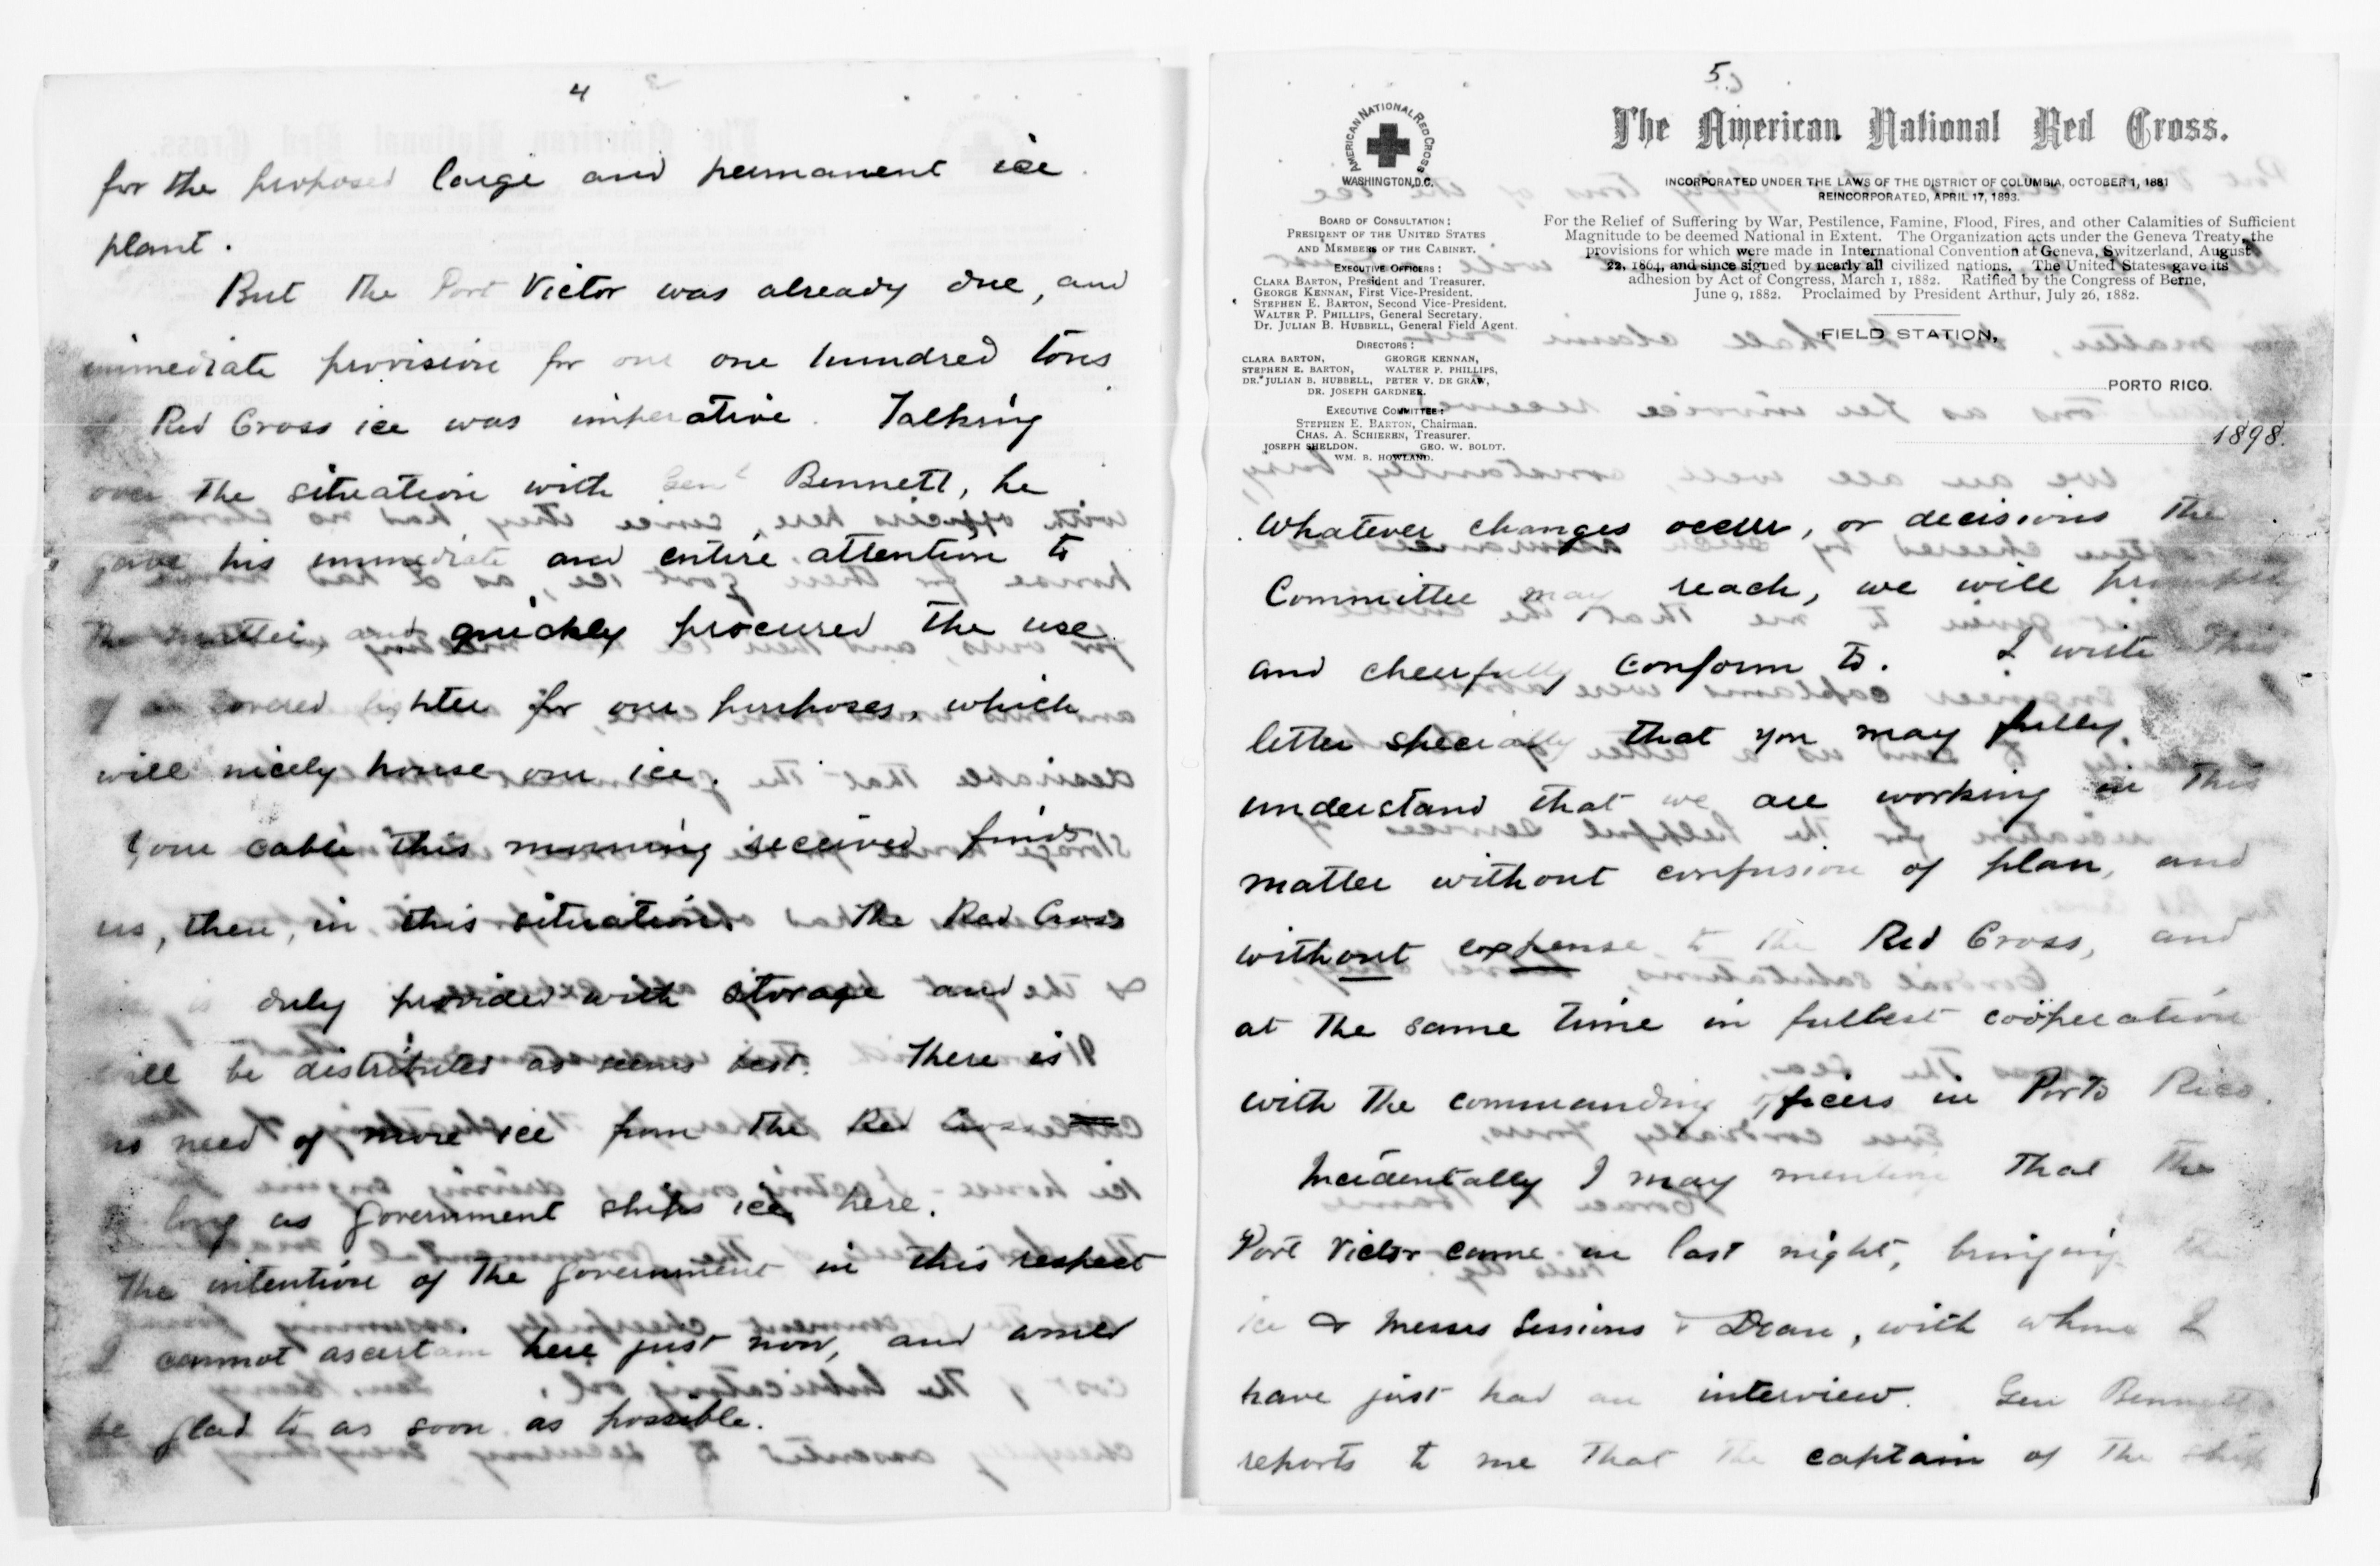 4
for the proposed large and permanent ice
plant.
But the Port Victor was already due, and
immediate provision for one one hundred tons
of Red Cross ice was imperative. Talking
over the situation with Genl Bennett, he
gave his immediate and entire attention to
the matter, and quickly procured the use
of a covered lighter for our purposes, which
will nicely house our ice.
Your cable this morning received finds
us, then, in this situation. The Red Cross
ice is duly provided with storage and
will be distributed as seems best. There is
no need of more ice from the Red Cross
so long as government ships ice here.
The intention of the government in this respect
I cannot ascertain here just now, and
be glad to as soon as possible.
5
AMERICAN NATIONAL RED CROSS
WASHINGTON, D.C.
BOARD OF CONSULTATION:
PRESIDENT OF THE UNITED STATES
AND MEMBERS OF THE CABINET.
EXECUTIVE OFFICERS:
CLARA BARTON, President and Treasurer.
GEORGE KENNAN, First Vice-President.
STEPHEN E. BARTON, Second Vice-President.
WALTER P. PHILLIPS, General Secretary.
Dr. JULIAN B. HUBBELL, General Field Agent.
DIRECTORS:
CLARA BARTON, GEORGE KENNAN,
STEPHEN E. BARTON, WALTER P. PHILLIPS,
DR. JULIAN B. HUBBELL, PETER V. DE GRAW,
DR. JOSEPH GARDNER.
EXECUTIVE COMMITTEE:
STEPHEN E. BARTON, Chairman.
CHAS. A. SCHIEREN, Treasurer.
JOSEPH SHELDON. GEO. W. BOLDT.
WM. B. HOWLAND.
The American National Red Cross.
INCORPORATED UNDER THE LAWS OF THE DISTRICT OF COLUMBIA, OCTOBER 1, 1881
REINCORPORATED, APRIL 17, 1893.
For the Relief of Suffering by War, Pestilence, Famine, Flood, Fires, and other Calamities of Sufficient
Magnitude to be deemed National in Extent. The Organization acts under the Geneva Treaty, the
provisions for which were made in International Convention at Geneva, Switzerland, August
22, 1864, and since signed by nearly all civilized nations. The United States gave its
adhesion by Act of Congress, March 1, 1882. Ratified by the Congress of Berne,
June 9, 1882. Proclaimed by President Arthur, July 26, 1882.
FIELD STATION,
PORTO RICO.
1898.
Whatever changes occur, or decisions the
Committee may reach, we will promptly
and cheerfully conform to. I write this
letter specially that you may fully
understand that we are working in this
matter without confusion of plan, and
without expense to the Red Cross, and
at the same time in fullest coöperation
with the commanding officers in Porto Rico.
Incidentally I may mention that the
Port Victor came in last night, bringing the
ice & Messrs Sessions & Dean, with whom I
have just had an interview. Gen Bennett
reports to me that the captain of the ship